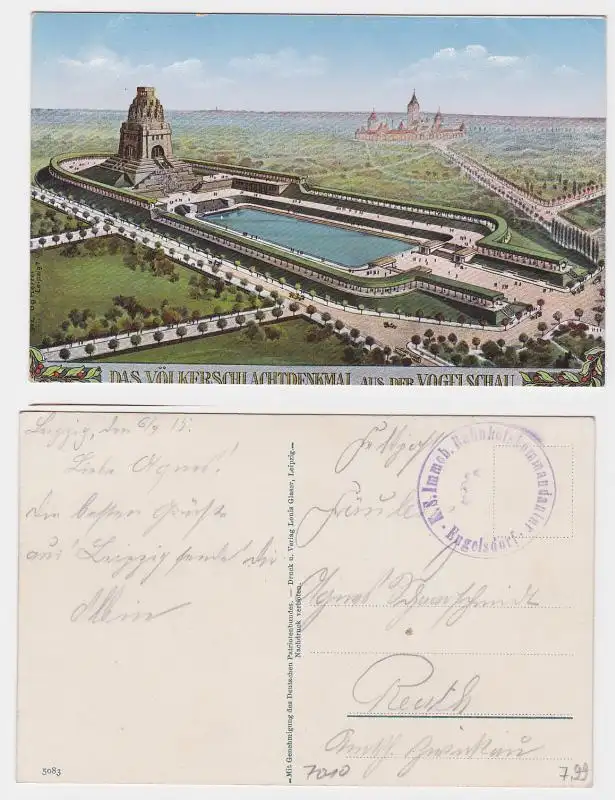 DAS VÖLKERSCHLACHTDENKMAL AUS DER VOGELSCHAU
Leipzig, den 6/9 15.
Liebe Agnes!
Die besten Grüße
aus Leipzig sendet dir
Feldpost
Fräulein
Agnes
Reuth
Amtsh. Zwickau
K. S. Immob. Bahnhofskommandantur
Engelsdorf.
—Mit Genehmigung des Deutschen Patriotenbundes. — Druck u. Verlag Louis Glaser, Leipzig.—
Nachdruck verboten.
5083
7010
7,99